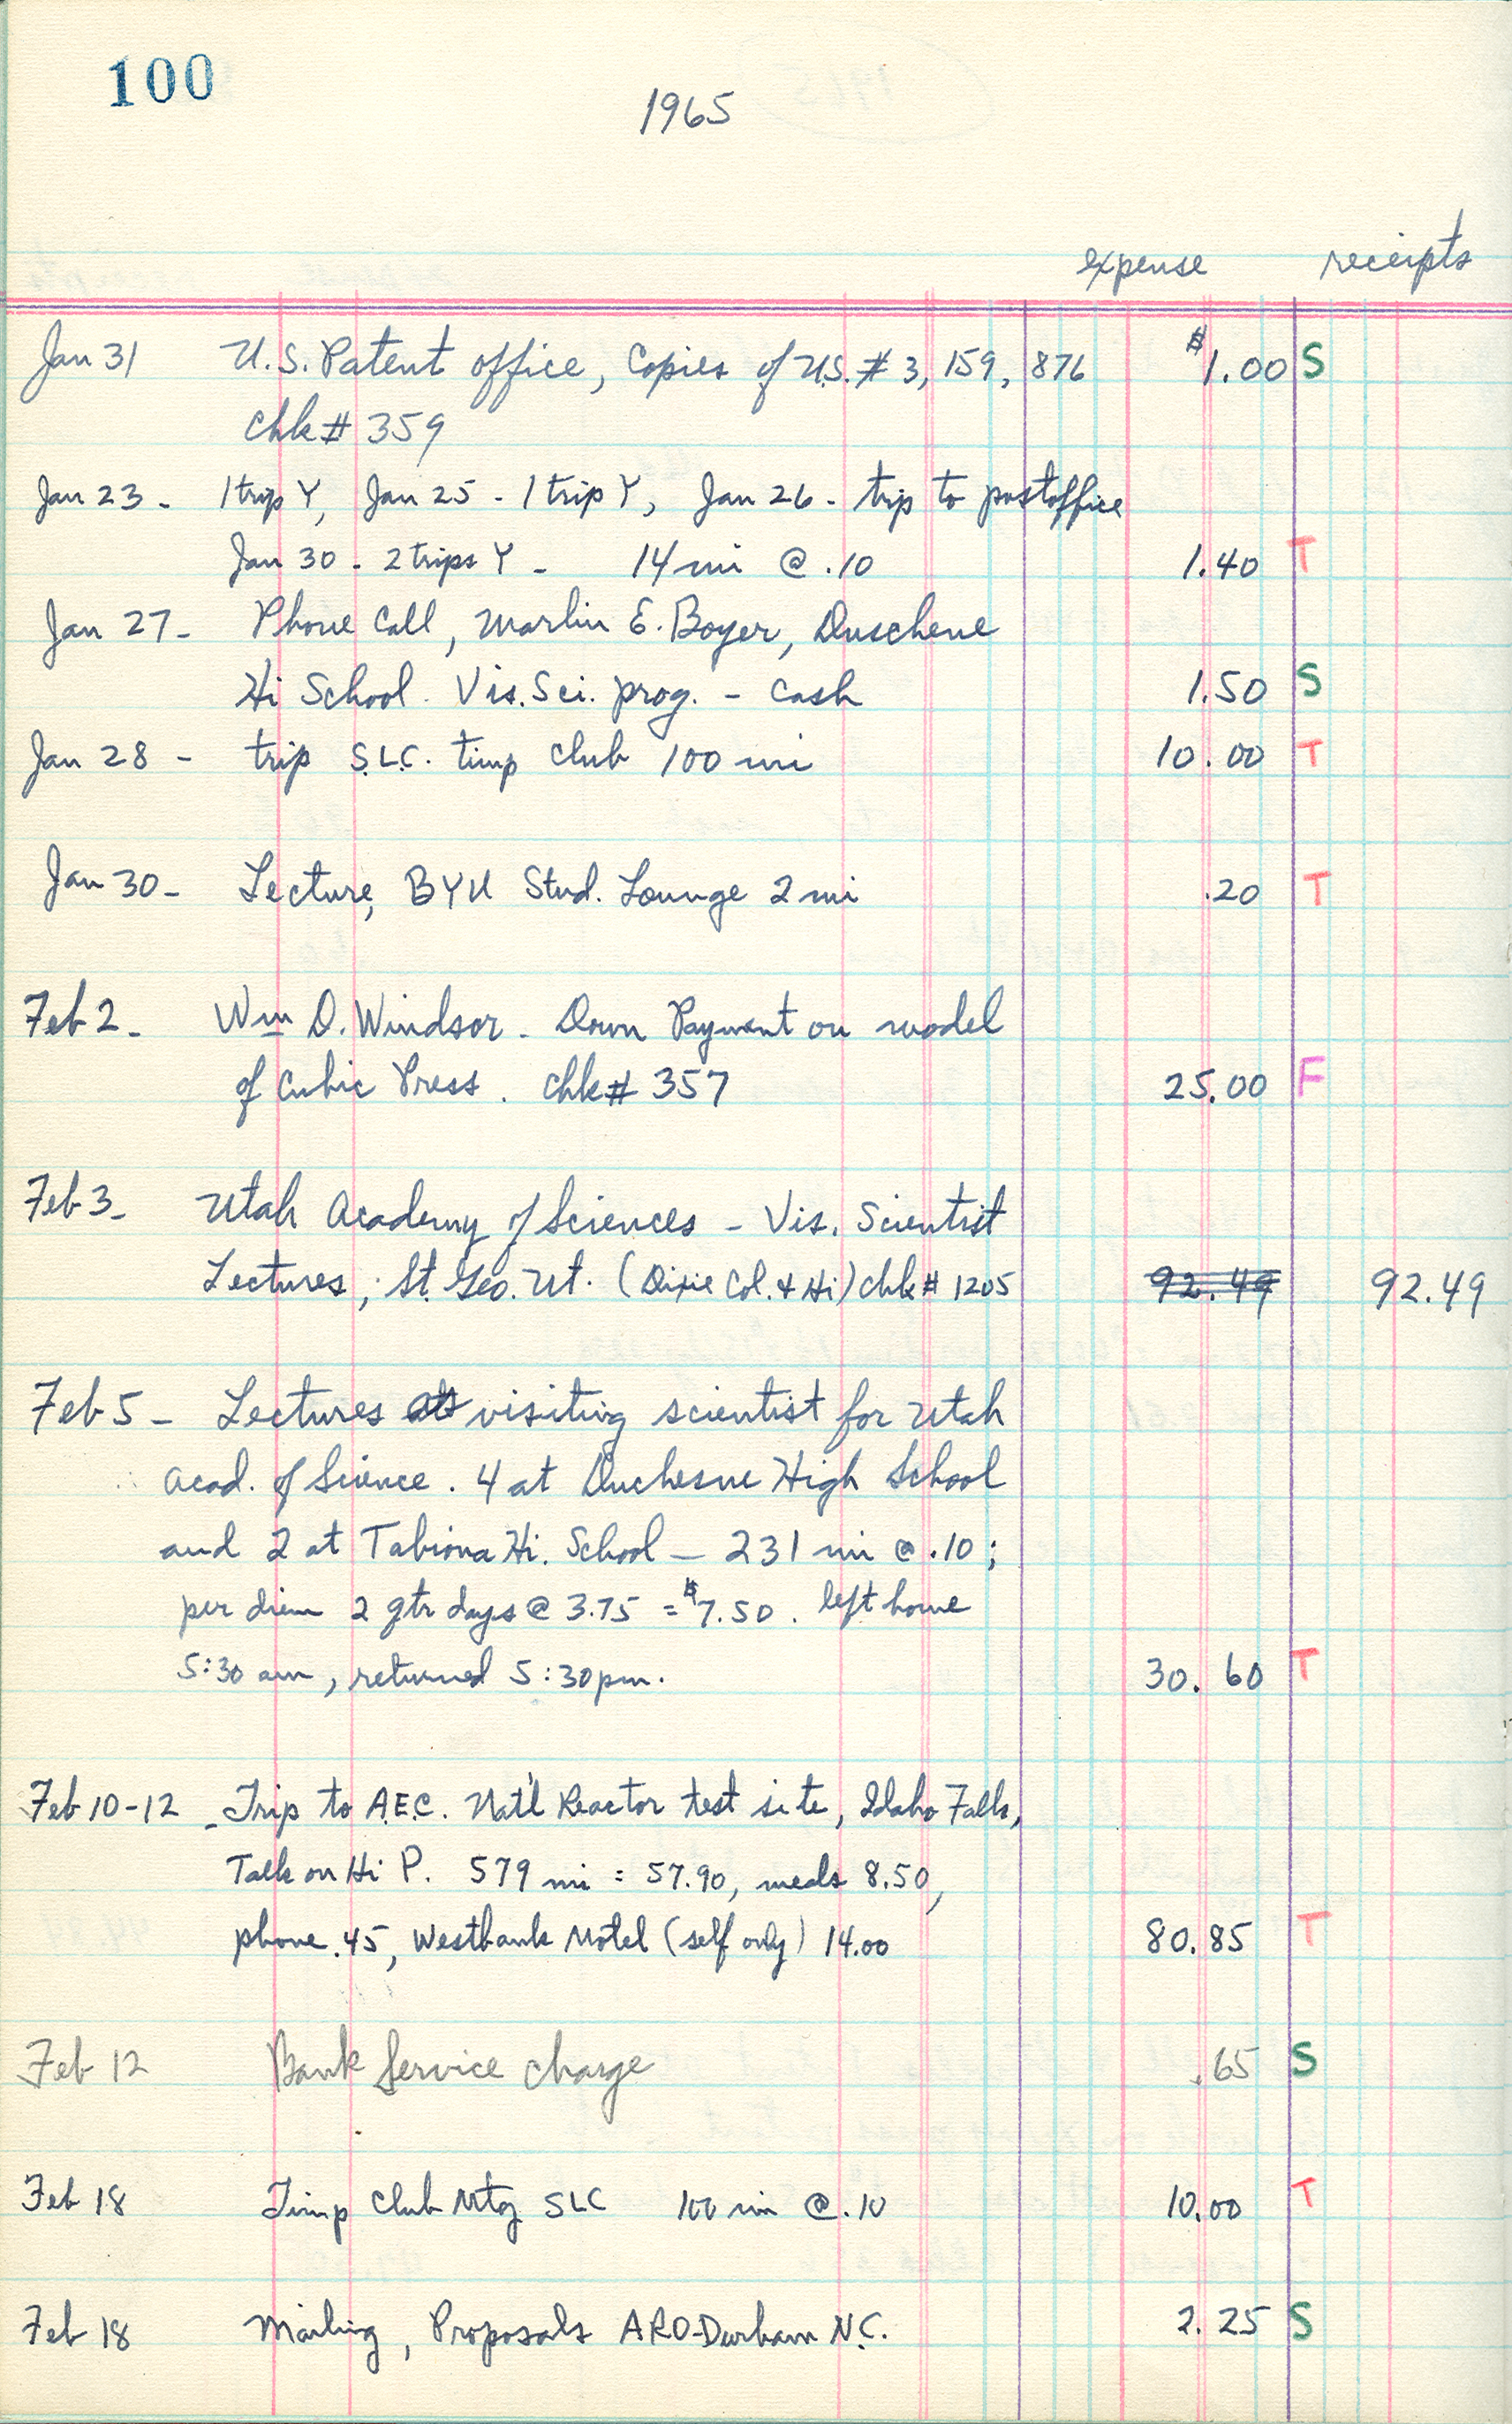 100
1965
expense receipts
Jan 31 U.S. Patent office, Copies of U.S. # 3,159,876 $1.00 S
chk# 359
Jan 23 - 1 trip Y, Jan 25 - 1 trip Y, Jan 26 - trip to postoffice
Jan 30 - 2 trips Y - 14 mi @ .10 1.40 T
Jan 27 - Phone Call, Marlin E. Boyer, Duschene
Hi School. Vis. Sci. prog. - Cash 1.50 S
Jan 28 - trip S.L.C. timp club 100 mi 10.00 T
Jan 30 - Lecture, BYU Stud. Lounge 2 mi .20 T
Feb 2 - Wm D. Windsor - Down Payment on model
of Cubic Press. chk# 357 25.00 F
Feb 3 - Utah Academy of Sciences - Vis. Scientist
Lectures; St. Geo. Ut. (Dixie Col. & Hi) chk# 1205 92.49 92.49
Feb 5 - Lectures as visiting scientist for Utah
Acad. of Science. 4 at Duchesne High School
and 2 at Tabiona Hi. School - 231 mi @ .10;
per diem 2 qtr days @ 3.75 = $7.50. left home
5:30 am, returned 5:30 pm. 30.60 T
Feb 10-12 - Trip to A.E.C. Nat'l Reactor test site, Idaho Falls,
Talk on Hi P. 579 mi = 57.90, meals 8.50,
phone .45, Westbank Motel (self only) 14.00 80.85 T
Feb 12 Bank Service charge .65 S
Feb 18 Timp Club Mtg SLC 100 mi @ .10 10.00 T
Feb 18 Mailing, Proposals ARO-Durham N.C. 2.25 S